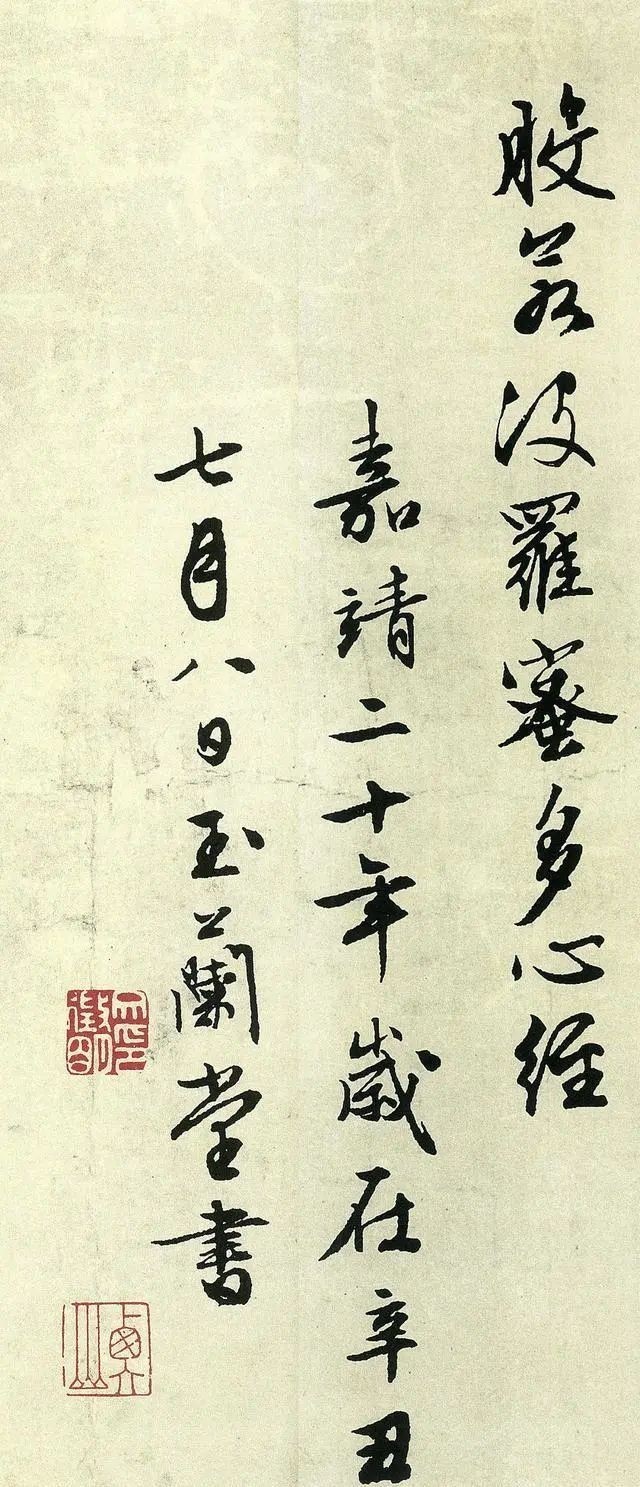 般若波羅蜜多心經
嘉靖二十年歲在辛丑
七月八日玉蘭堂書
文徵明印